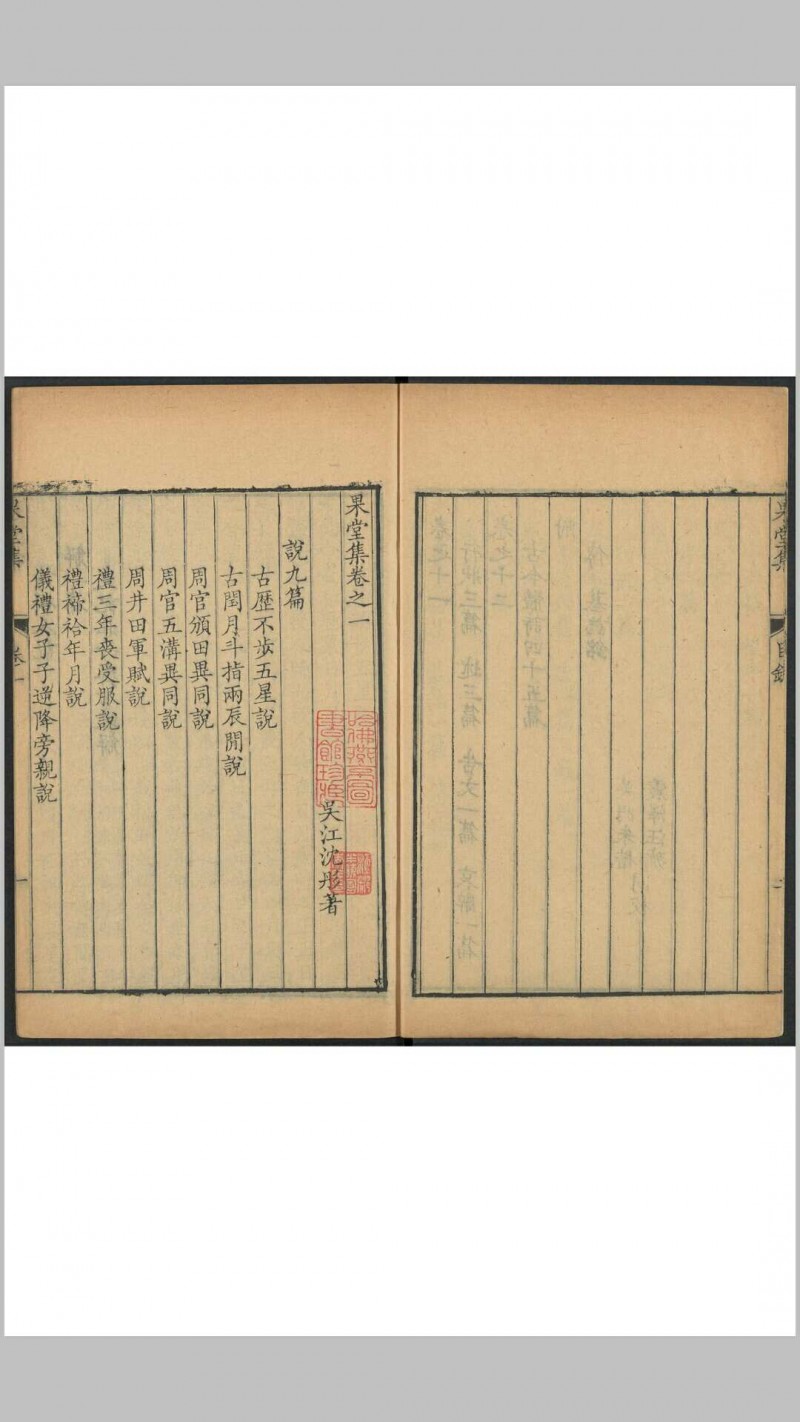 果堂集
目錄
果堂集卷之一
吳江沈彤著
說九篇
古歷不步五星說
古閏月斗指兩辰閒說
周官頒田異同說
周官五溝異同說
周井田軍賦說
禮三年喪受服說
禮禘祫年月說
儀禮女子子逆降旁親說
果堂集
卷一
一